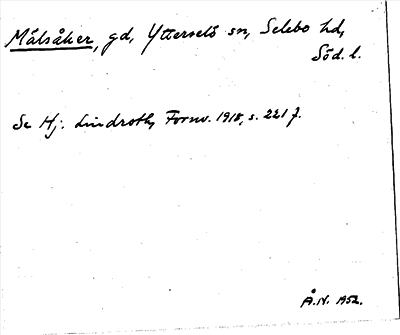 Målsåker, gd, Ytterselö sn, Selebo hd,
Söd. l.
Se Hj. Lindroth, Fornv. 1918, s. 221 f.
Å.N. 1952.